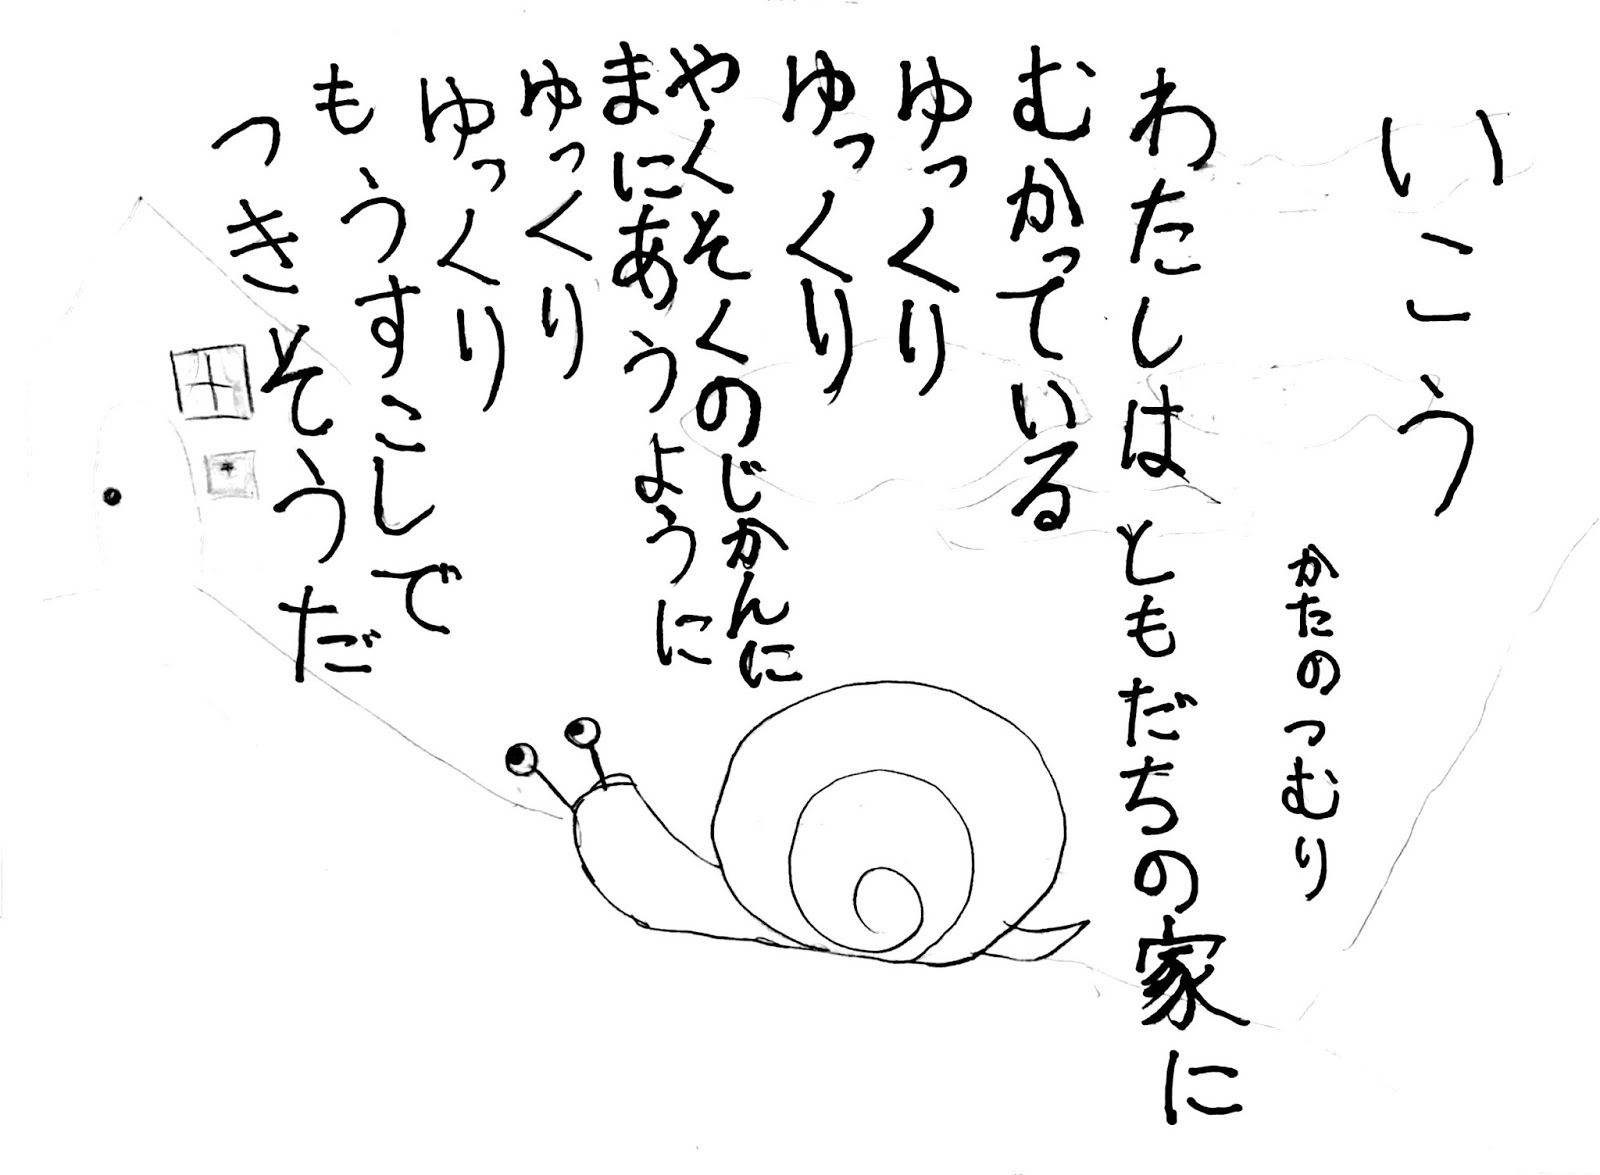 いこう
かたのつむり
わたしは ともだちの家に
むかっている
ゆっくり
ゆっくり
やくそくのじかんに
まにあうように
ゆっくり
ゆっくり
もうすこしで
つきそうだ